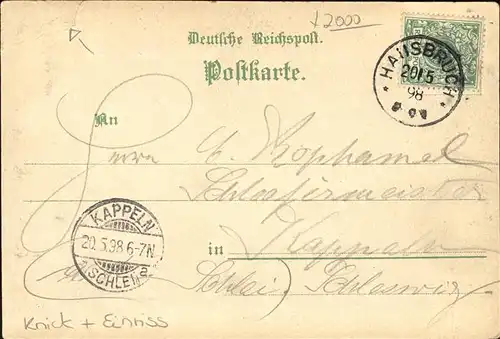 √2000
Deutsche Reichspost.
Postkarte.
HAUSBRUCH
20/5
98
An
Herrn C. Kophamel
Schlossermeister
in Kappeln
Schlei Schleswig
KAPPELN
20.5.98.6-7N
(SCHLEI) a
Knick + Einriss